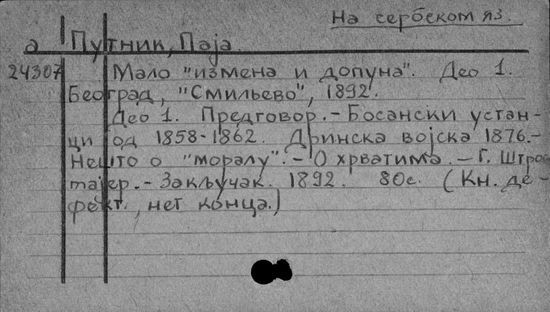 На сербском яз.
а Путник, Паја.
24307 Мало "измена и допуна". Део 1.
Београд, "Смиљево", 1892.
Део 1. Предговор. - Босански устан-
ци од 1858-1862. Дринска војска 1876.-
Нешто о "моралу". - О хрватима. - Г. Штрос
мајер. - Закључак. 1892. 80с. (Кн. де-
фект., нет конца.)